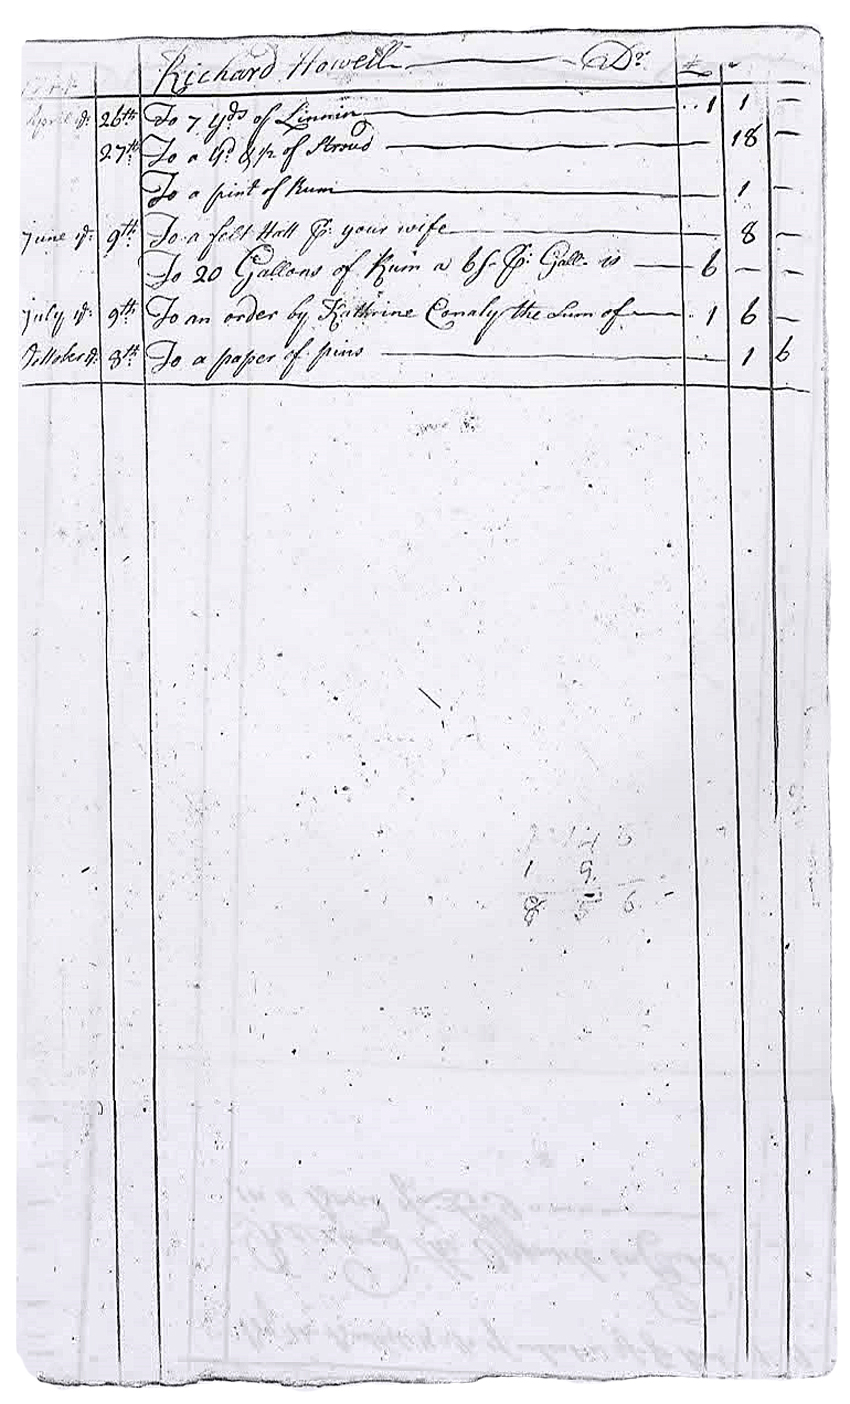 Richard Howell Dr. £
April ye 26th To 7 yds of Linnin 1 1 —
27th To a yd & 1/2 of Stroud 18 —
To a pint of Rum 1 —
June ye 9th To a felt Hatt Pr. your wife 8 —
To 20 Gallons of Rum a 6s Pr. Gall. is 6 — —
July ye 9th To an order by Kathrine Conaly the Sum of 1 6 —
October ye 8th To a paper of pins 1 6
1 9
8 5 6